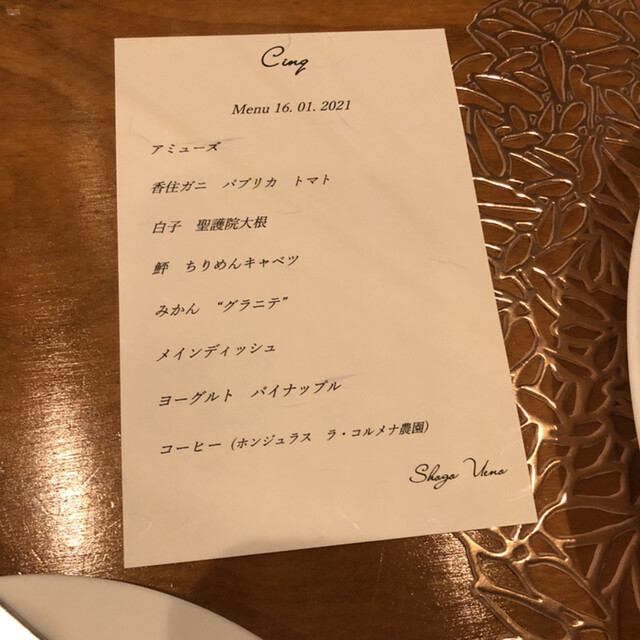 Cinq
Menu 16. 01. 2021
アミューズ
香住ガニ　パプリカ　トマト
白子　聖護院大根
鮃　ちりめんキャベツ
みかん　“グラニテ”
メインディッシュ
ヨーグルト　パイナップル
コーヒー（ホンジュラス　ラ・コルメナ農園）
Shogo Ueno